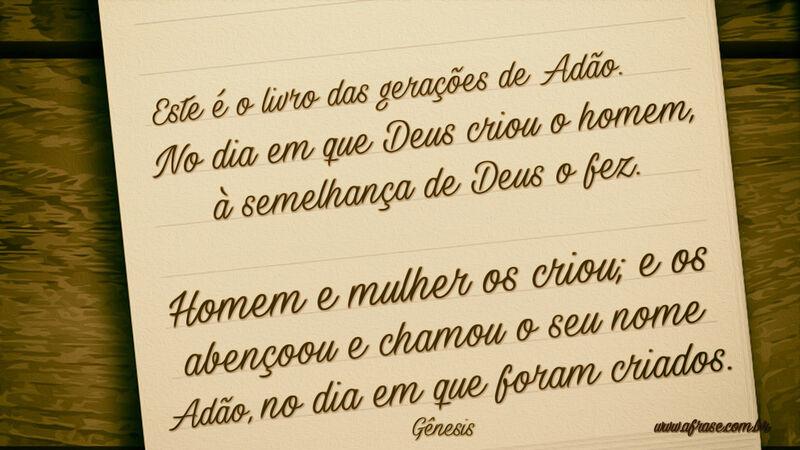 Este é o livro das gerações de Adão.
No dia em que Deus criou o homem,
à semelhança de Deus o fez.
Homem e mulher os criou; e os
abençoou e chamou o seu nome
Adão, no dia em que foram criados.
Gênesis
www.afrase.com.br